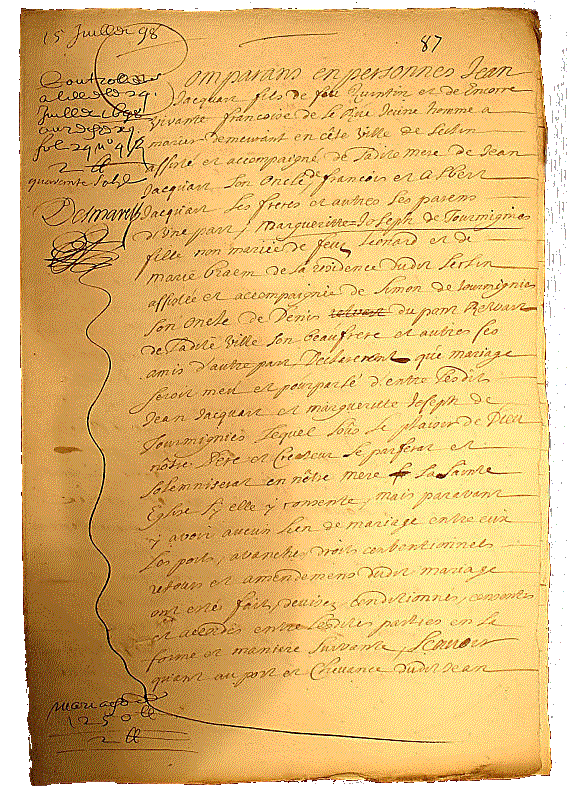 15 Juillet 98
87
Controllé
Juillet 1698
fol 29 n° 4
2 tt
quarente sols
Desmaretz
Comparans en personnes Jean
Jacquart fils de feu Quintin et de Encorre
vivante francoise de le Rue Jeune homme a
marier demeurant en cête ville de
assisté et accompagné de ladite mere de Jean
Jacquart son oncle de francois et Albert
Jacquart ses freres et autres ses parens
d'une part, Margueritte Joseph de Tourmignies
fille non mariée de feu Leonard et de
marie braem de la residence dudit
assistée et accompagniée de Simon de tourmignies
son oncle de Denis du pont Rewart
de ladite ville son beaufrere et autres ses
amis d'autre part Declarerent que mariage
seroit meu et pourparlé d'entre lesdits
Jean Jacquart et margueritte Joseph de
Tourmignies lequel sous le plaisir de Dieu
nôtre Pere et Createur se parferat et
solemniserat en nôtre mere la Sainte
Eglise sy elle y consente, mais paravant
y avoir aucun lien de mariage entre eux
les ports, avanches, droits conventionnels
retours et amendemens dudit mariage
ont estés faits, devisez, conditionnes, consentes
et acordés entre lesdites parties en la
forme et maniere suivante, Scavoir
quant au port et Chevance dudit Jean
mariage
1250 tt
2 tt